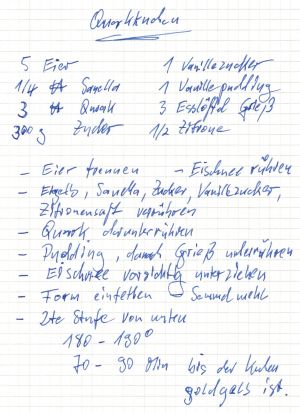 Quarkkuchen
5 Eier 1 Vanillezucker
1/4 ℔ Sanella 1 Vanillepudding
3 ℔ Quark 3 Esslöffel Grieß
300 g Zucker 1/2 Zitrone
- Eier trennen - Eischnee rühren
- Eigelb, Sanella, Zucker, Vanillezucker,
Zitronensaft verrühren
- Quark darunterrühren
- Pudding, danach Grieß unterrühren
- Eischnee vorsichtig unterziehen
- Form einfetten Semmelmehl
- 2te Stufe von unten
180 - 190°
70 - 90 Min bis der Kuchen
goldgelb ist.